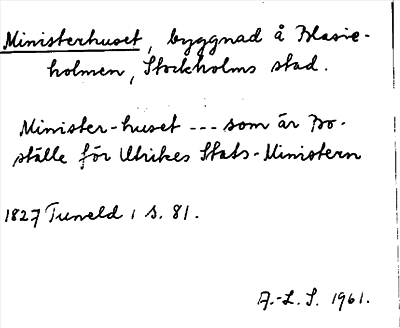 Ministerhuset, byggnad å Blasie-
holmen, Stockholms stad.
Minister-huset --- som är Bo-
ställe för Utrikes Stats-Ministern
1827 Tuneld 1 s. 81.
A.-L. S. 1961.